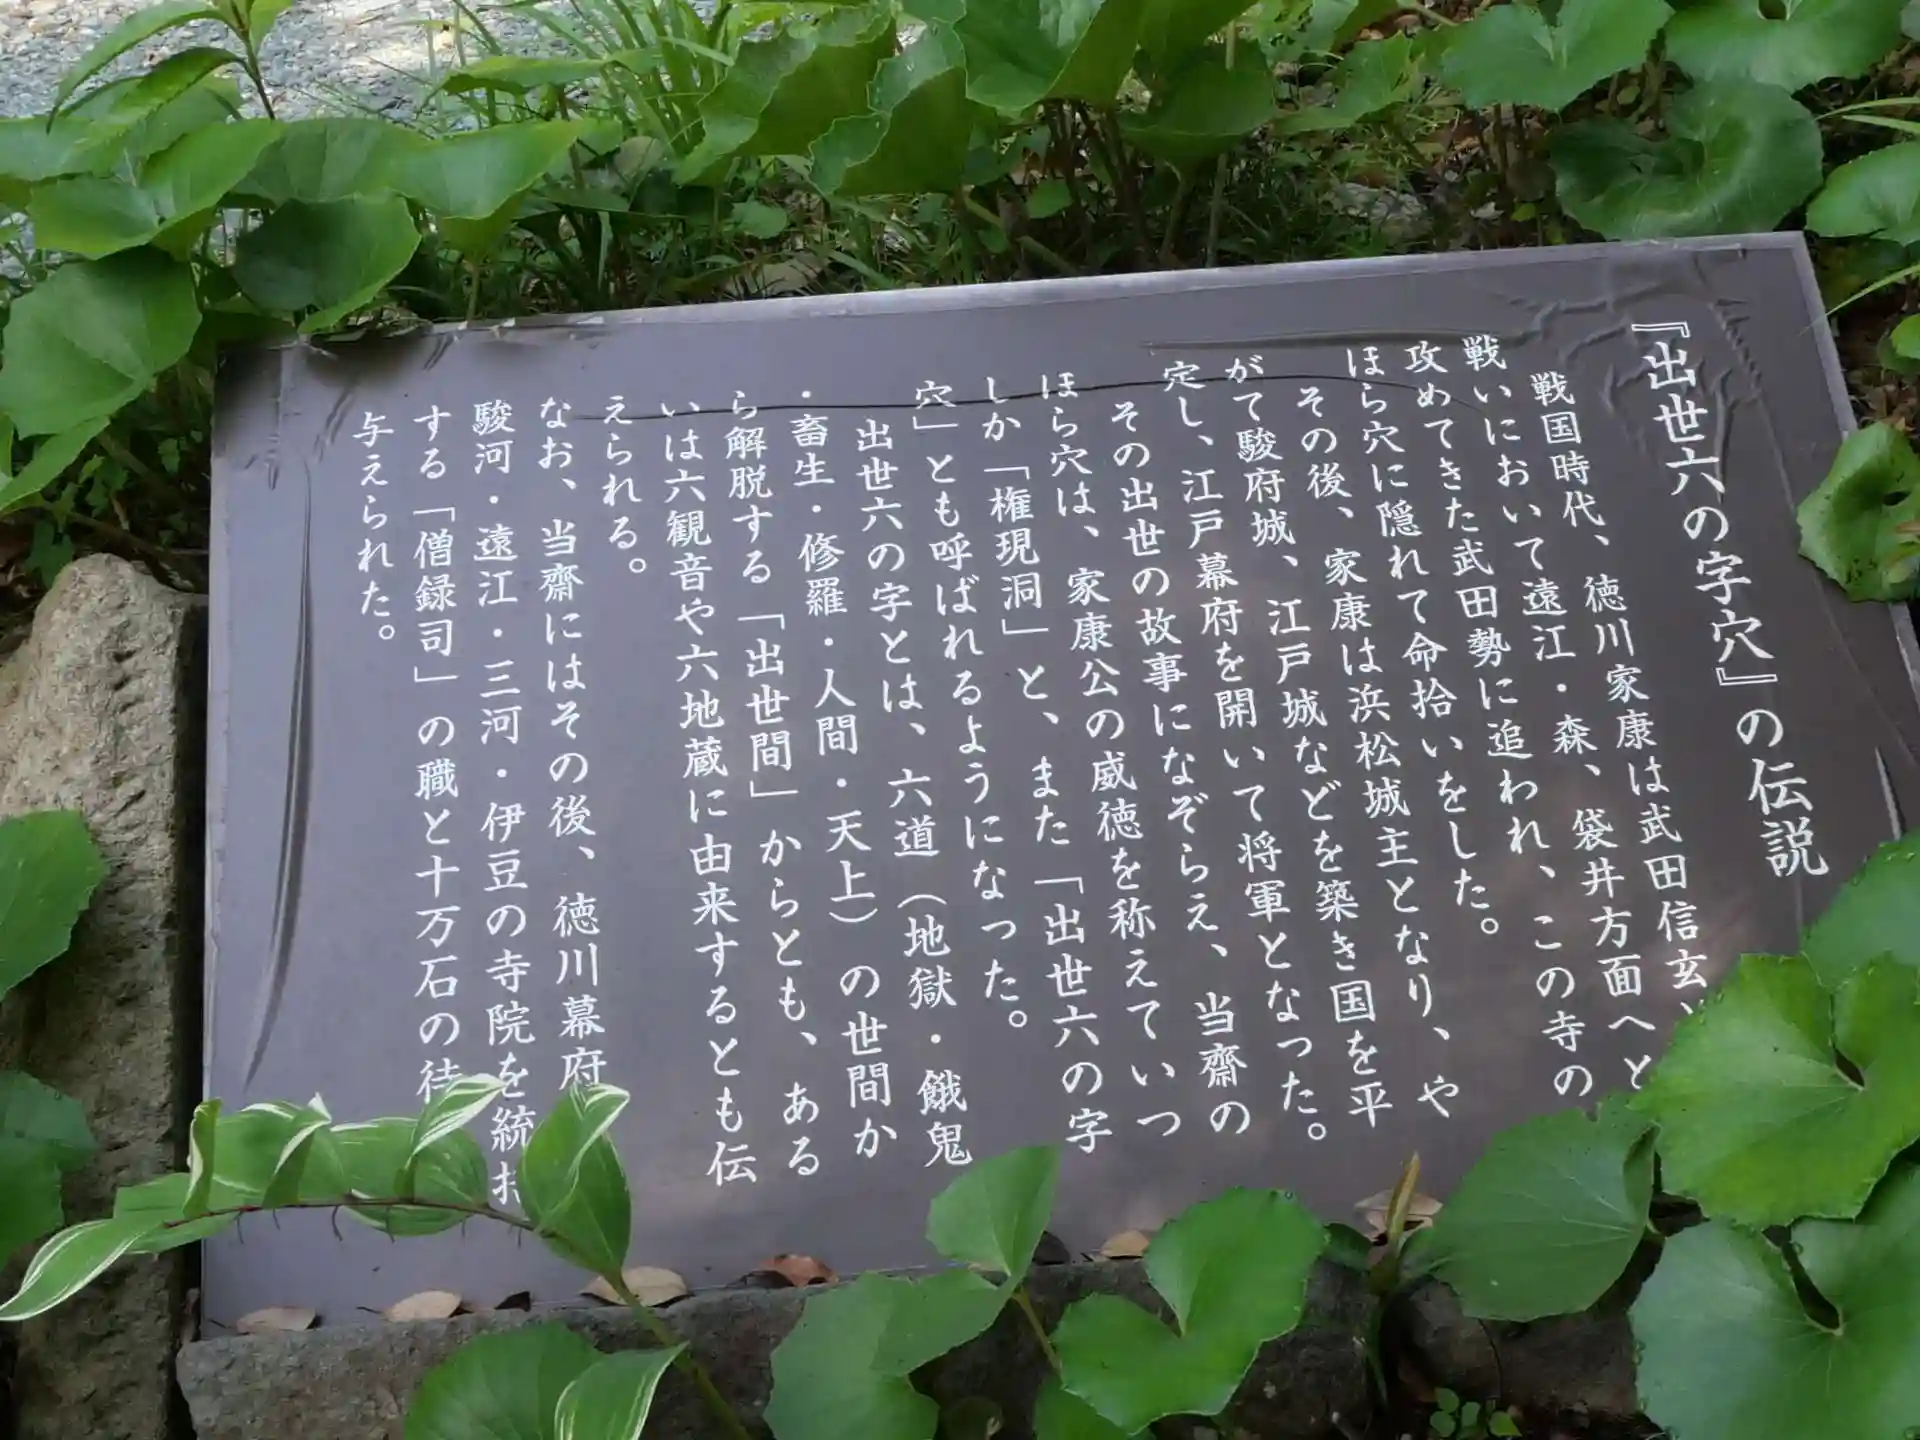 『出世六の字穴』の伝説
戦国時代、徳川家康は武田信玄、
戦いにおいて遠江・森、袋井方面へと
攻めてきた武田勢に追われ、この寺の
ほら穴に隠れて命拾いをした。
その後、家康は浜松城主となり、や
がて駿府城、江戸城などを築き国を平
定し、江戸幕府を開いて将軍となった。
その出世の故事になぞらえ、当齋の
ほら穴は、家康公の威徳を称えていつ
しか「権現洞」と、また「出世六の字
穴」とも呼ばれるようになった。
出世六の字とは、六道（地獄・餓鬼
・畜生・修羅・人間・天上）の世間か
ら解脱する「出世間」からとも、ある
いは六観音や六地蔵に由来するとも伝
えられる。
なお、当齋にはその後、徳川幕府
駿河・遠江・三河・伊豆の寺院を統
する「僧録司」の職と十万石の待
与えられた。